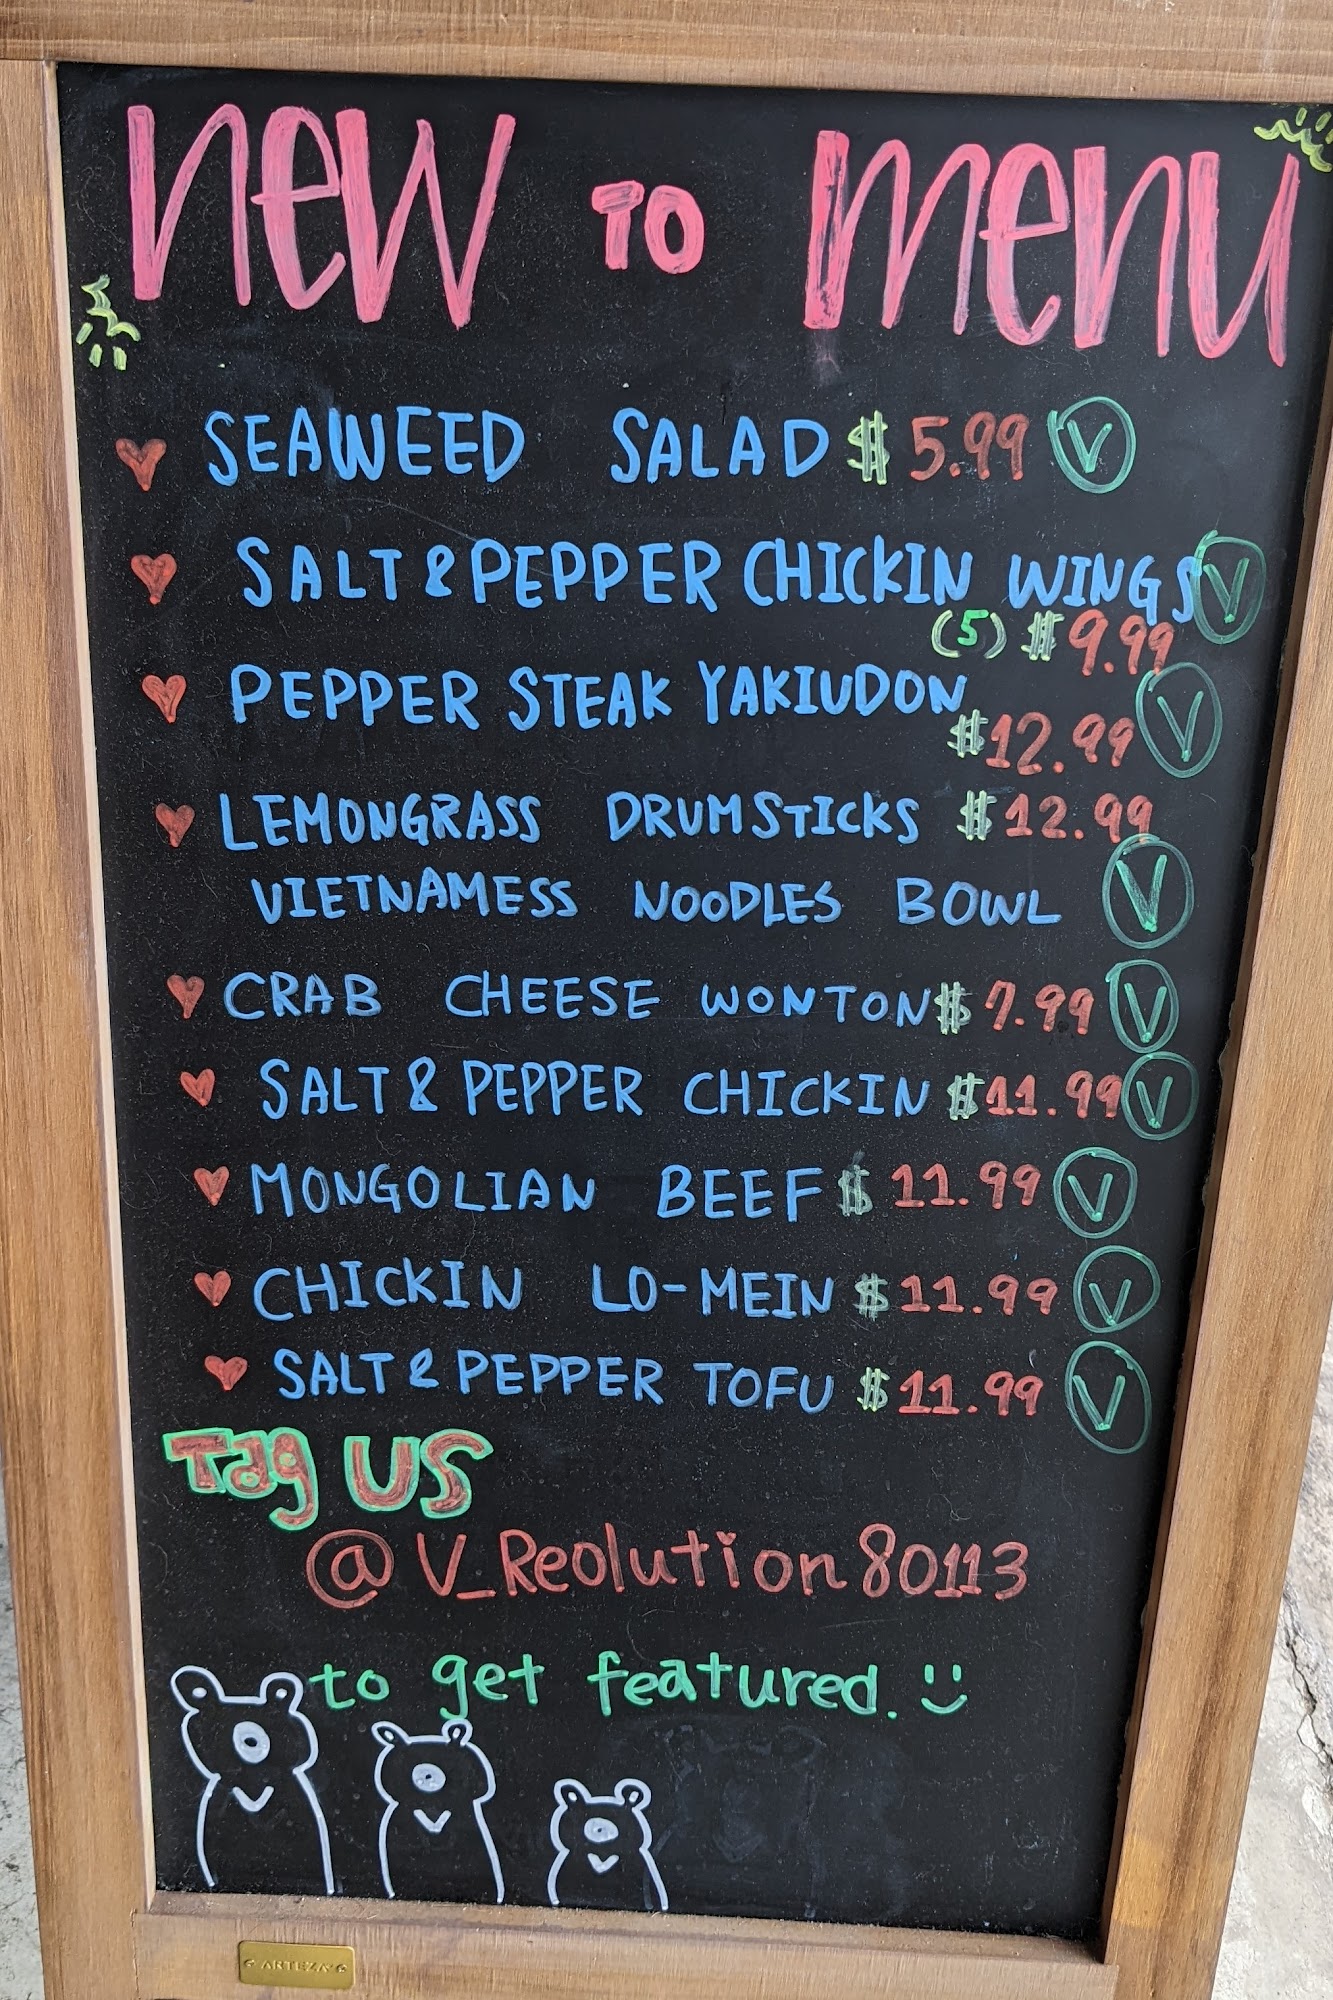 new TO menu
SEAWEED SALAD $5.99 V
SALT & PEPPER CHICKIN WINGS V
(5) $9.99
PEPPER STEAK YAKIUDON
$12.99 V
LEMONGRASS DRUMSTICKS $12.99
VIETNAMESS NOODLES BOWL V
CRAB CHEESE WONTON $7.99 V
SALT & PEPPER CHICKIN $11.99 V
MONGOLIAN BEEF $11.99 V
CHICKIN LO-MEIN $11.99 V
SALT & PEPPER TOFU $11.99 V
Tag US
@V_Reolution80113
to get featured.
ARTEZA